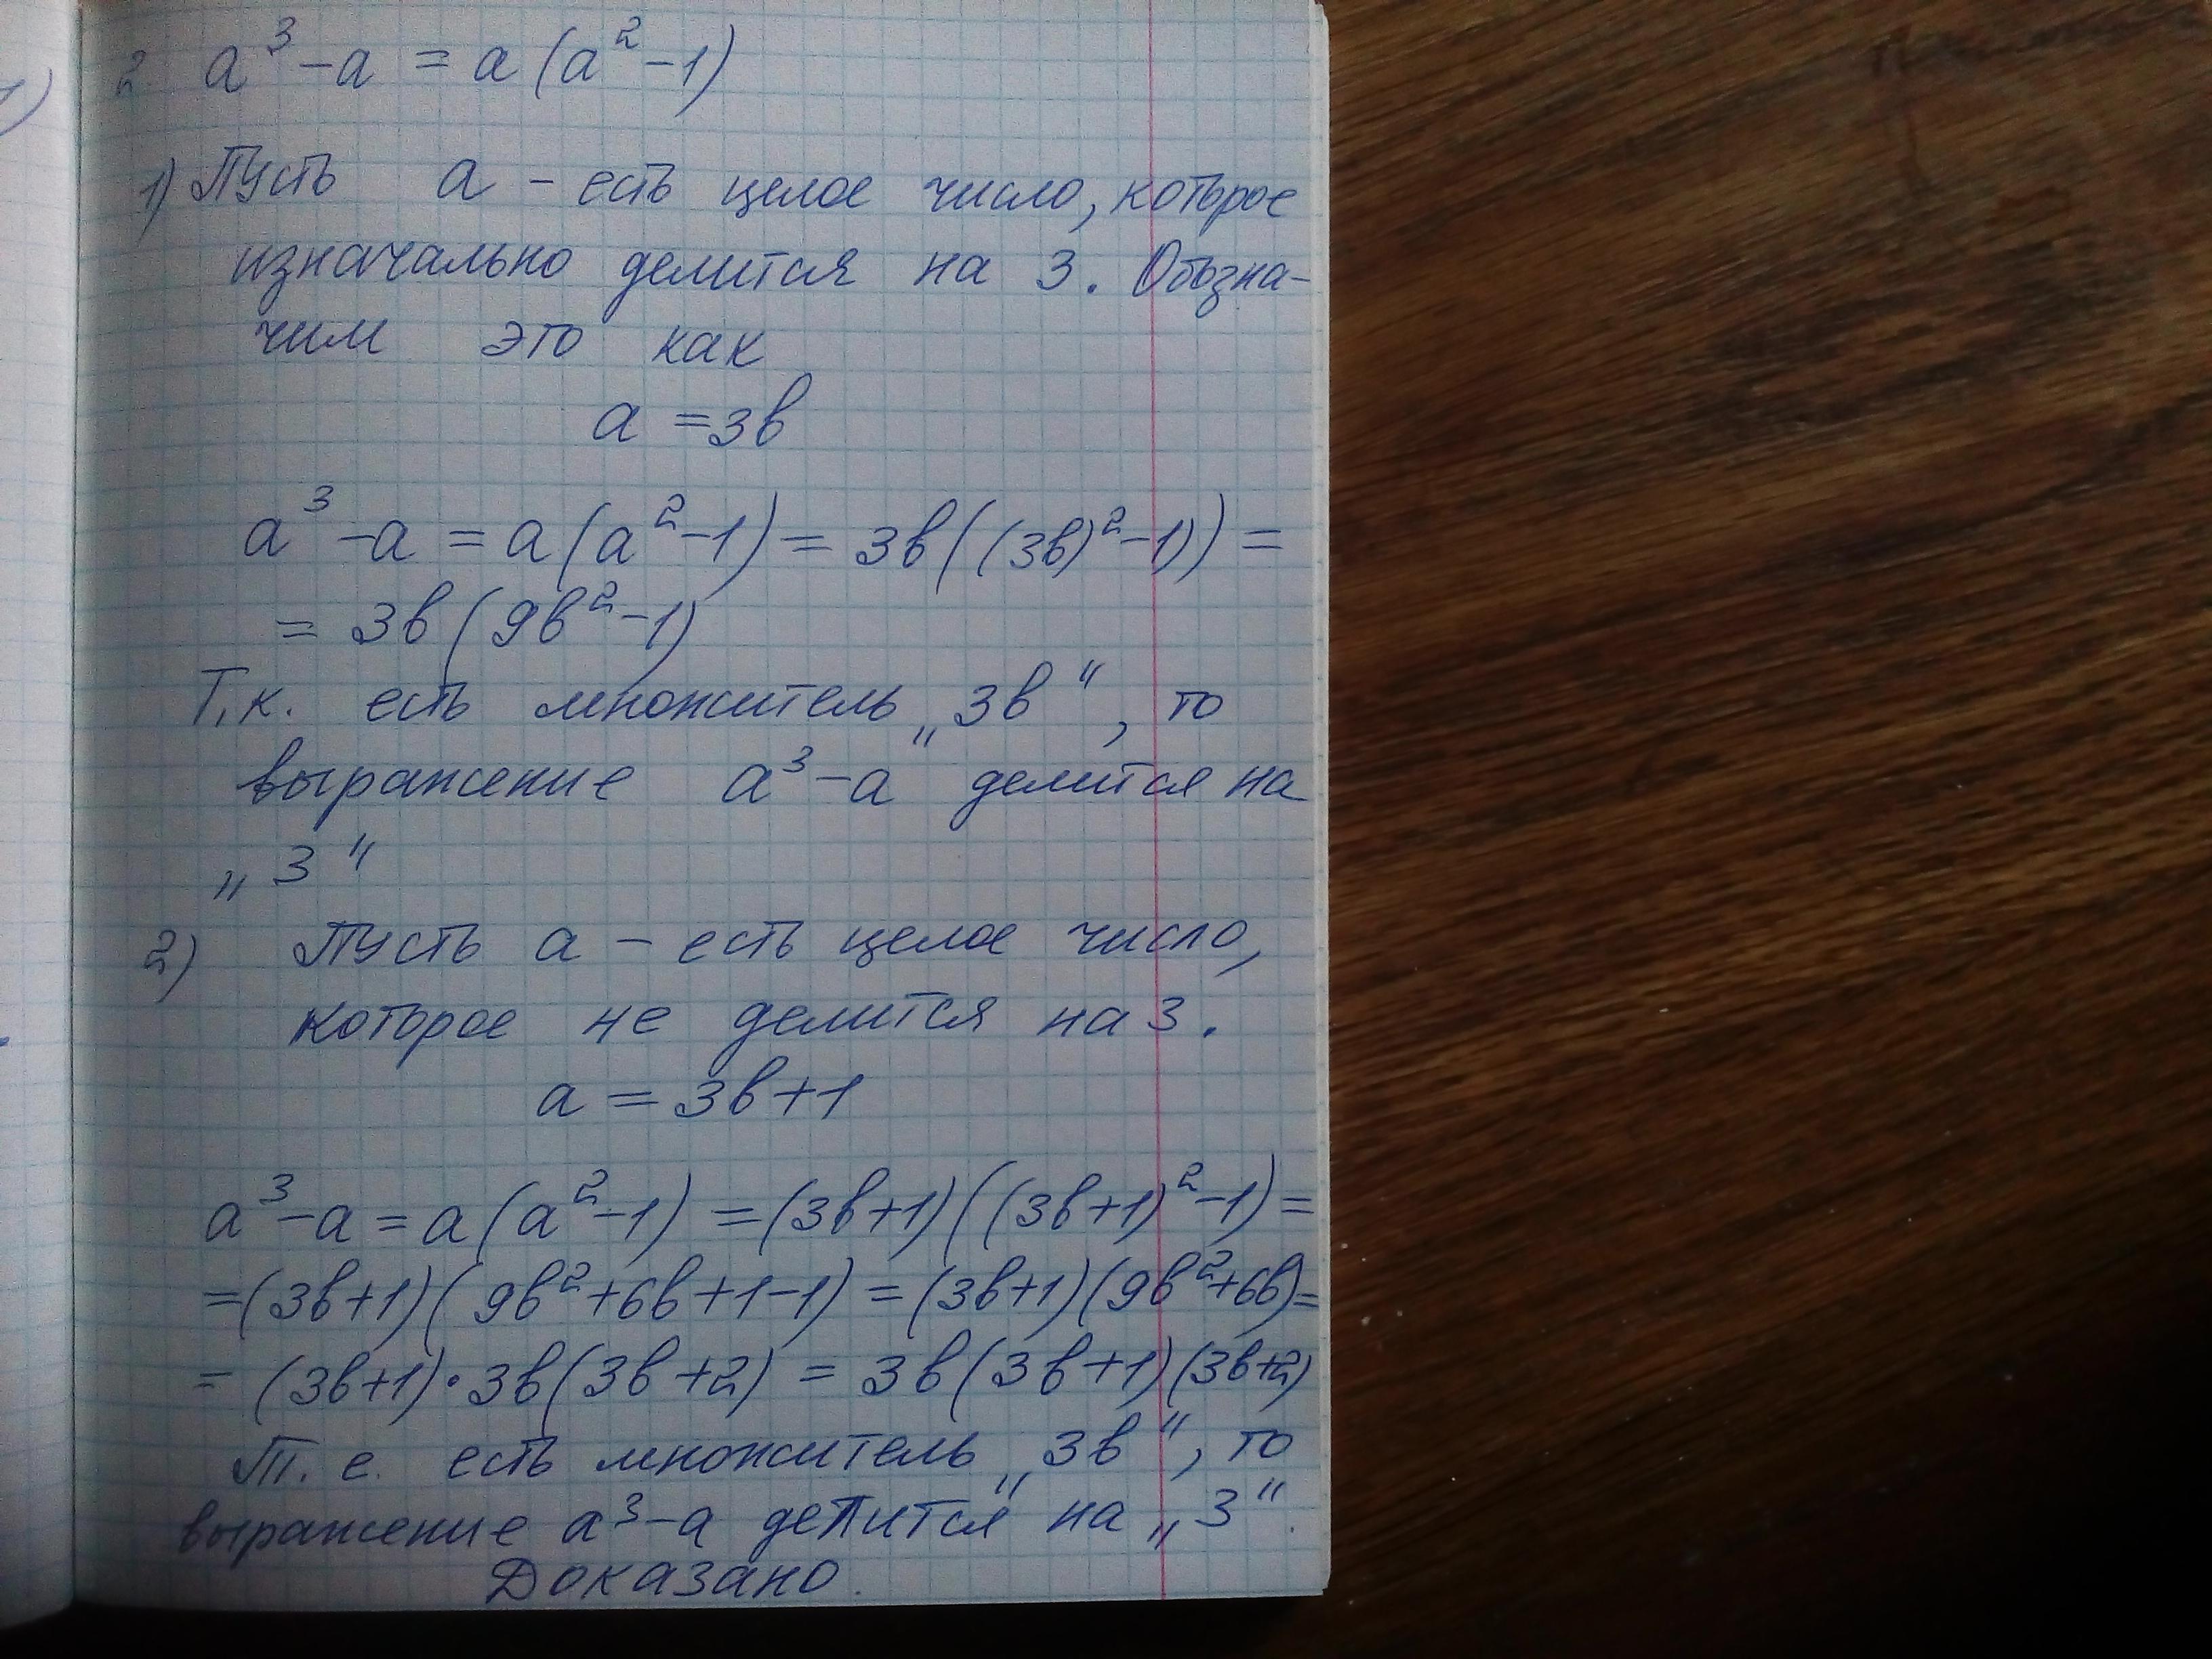 2. a³-a = a(a²-1)
1) Пусть a - есть целое число, которое
изначально делится на 3. Обозна-
чим это как
a = 3в
a³-a = a(a²-1) = 3в((3в)²-1)) =
= 3в(9в²-1)
Т.к. есть множитель „3в“, то
выражение „a³-a“ делится на
„3“
2) Пусть a - есть целое число,
которое не делится на 3.
a = 3в+1
a³-a = a(a²-1) = (3в+1)((3в+1)²-1) =
= (3в+1)(9в²+6в+1-1) = (3в+1)(9в²+6в) =
= (3в+1)·3в(3в+2) = 3в(3в+1)(3в+2)
Т.е. есть множитель „3в“, то
выражение a³-a делится на „3“.
Доказано.